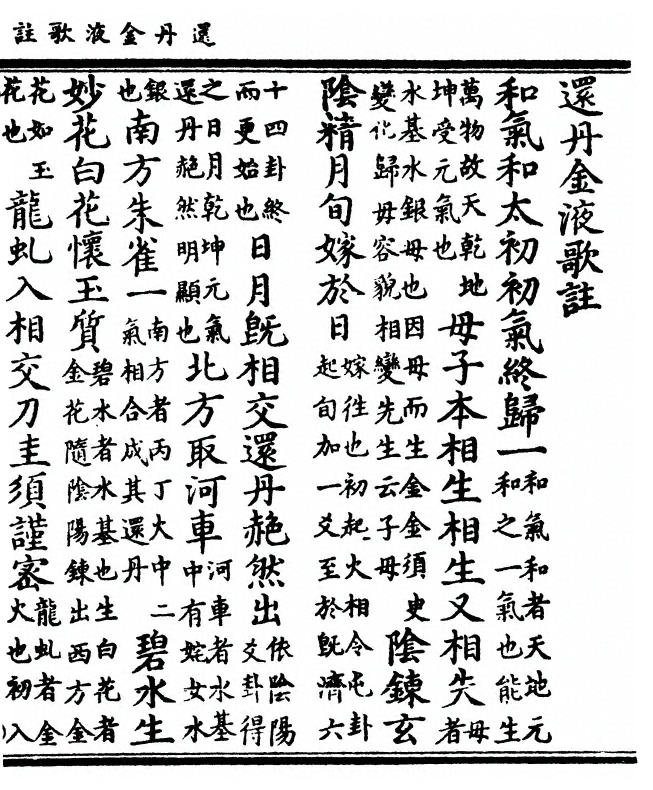 還丹金液歌註
還丹金液歌註
和氣和太初初氣終歸一和氣和者天地元和之一氣也能生
萬物故天乾地坤受元氣也母子本相生相生又相失母者
水基水銀母也因母而生金金須史變化歸母容貌相變先生云子母陰鍊玄
陰精月旬嫁於日嫁徃也初起火相令屯卦起旬加一爻至於旣濟六
十四卦終而更始也日月旣相交還丹赩然出依陰陽爻卦得
之日月乾坤元氣還丹赩然明顯也北方取河車河車者水基中有姹女水
銀也南方朱雀一南方者丙丁大中二氣相合成其還丹碧水生
妙花白花懷玉質碧水者水基也生白花者金花隨陰陽鍊出西方金
花如玉花也龍虬入相交刀圭須謹密龍虬者金火也初入